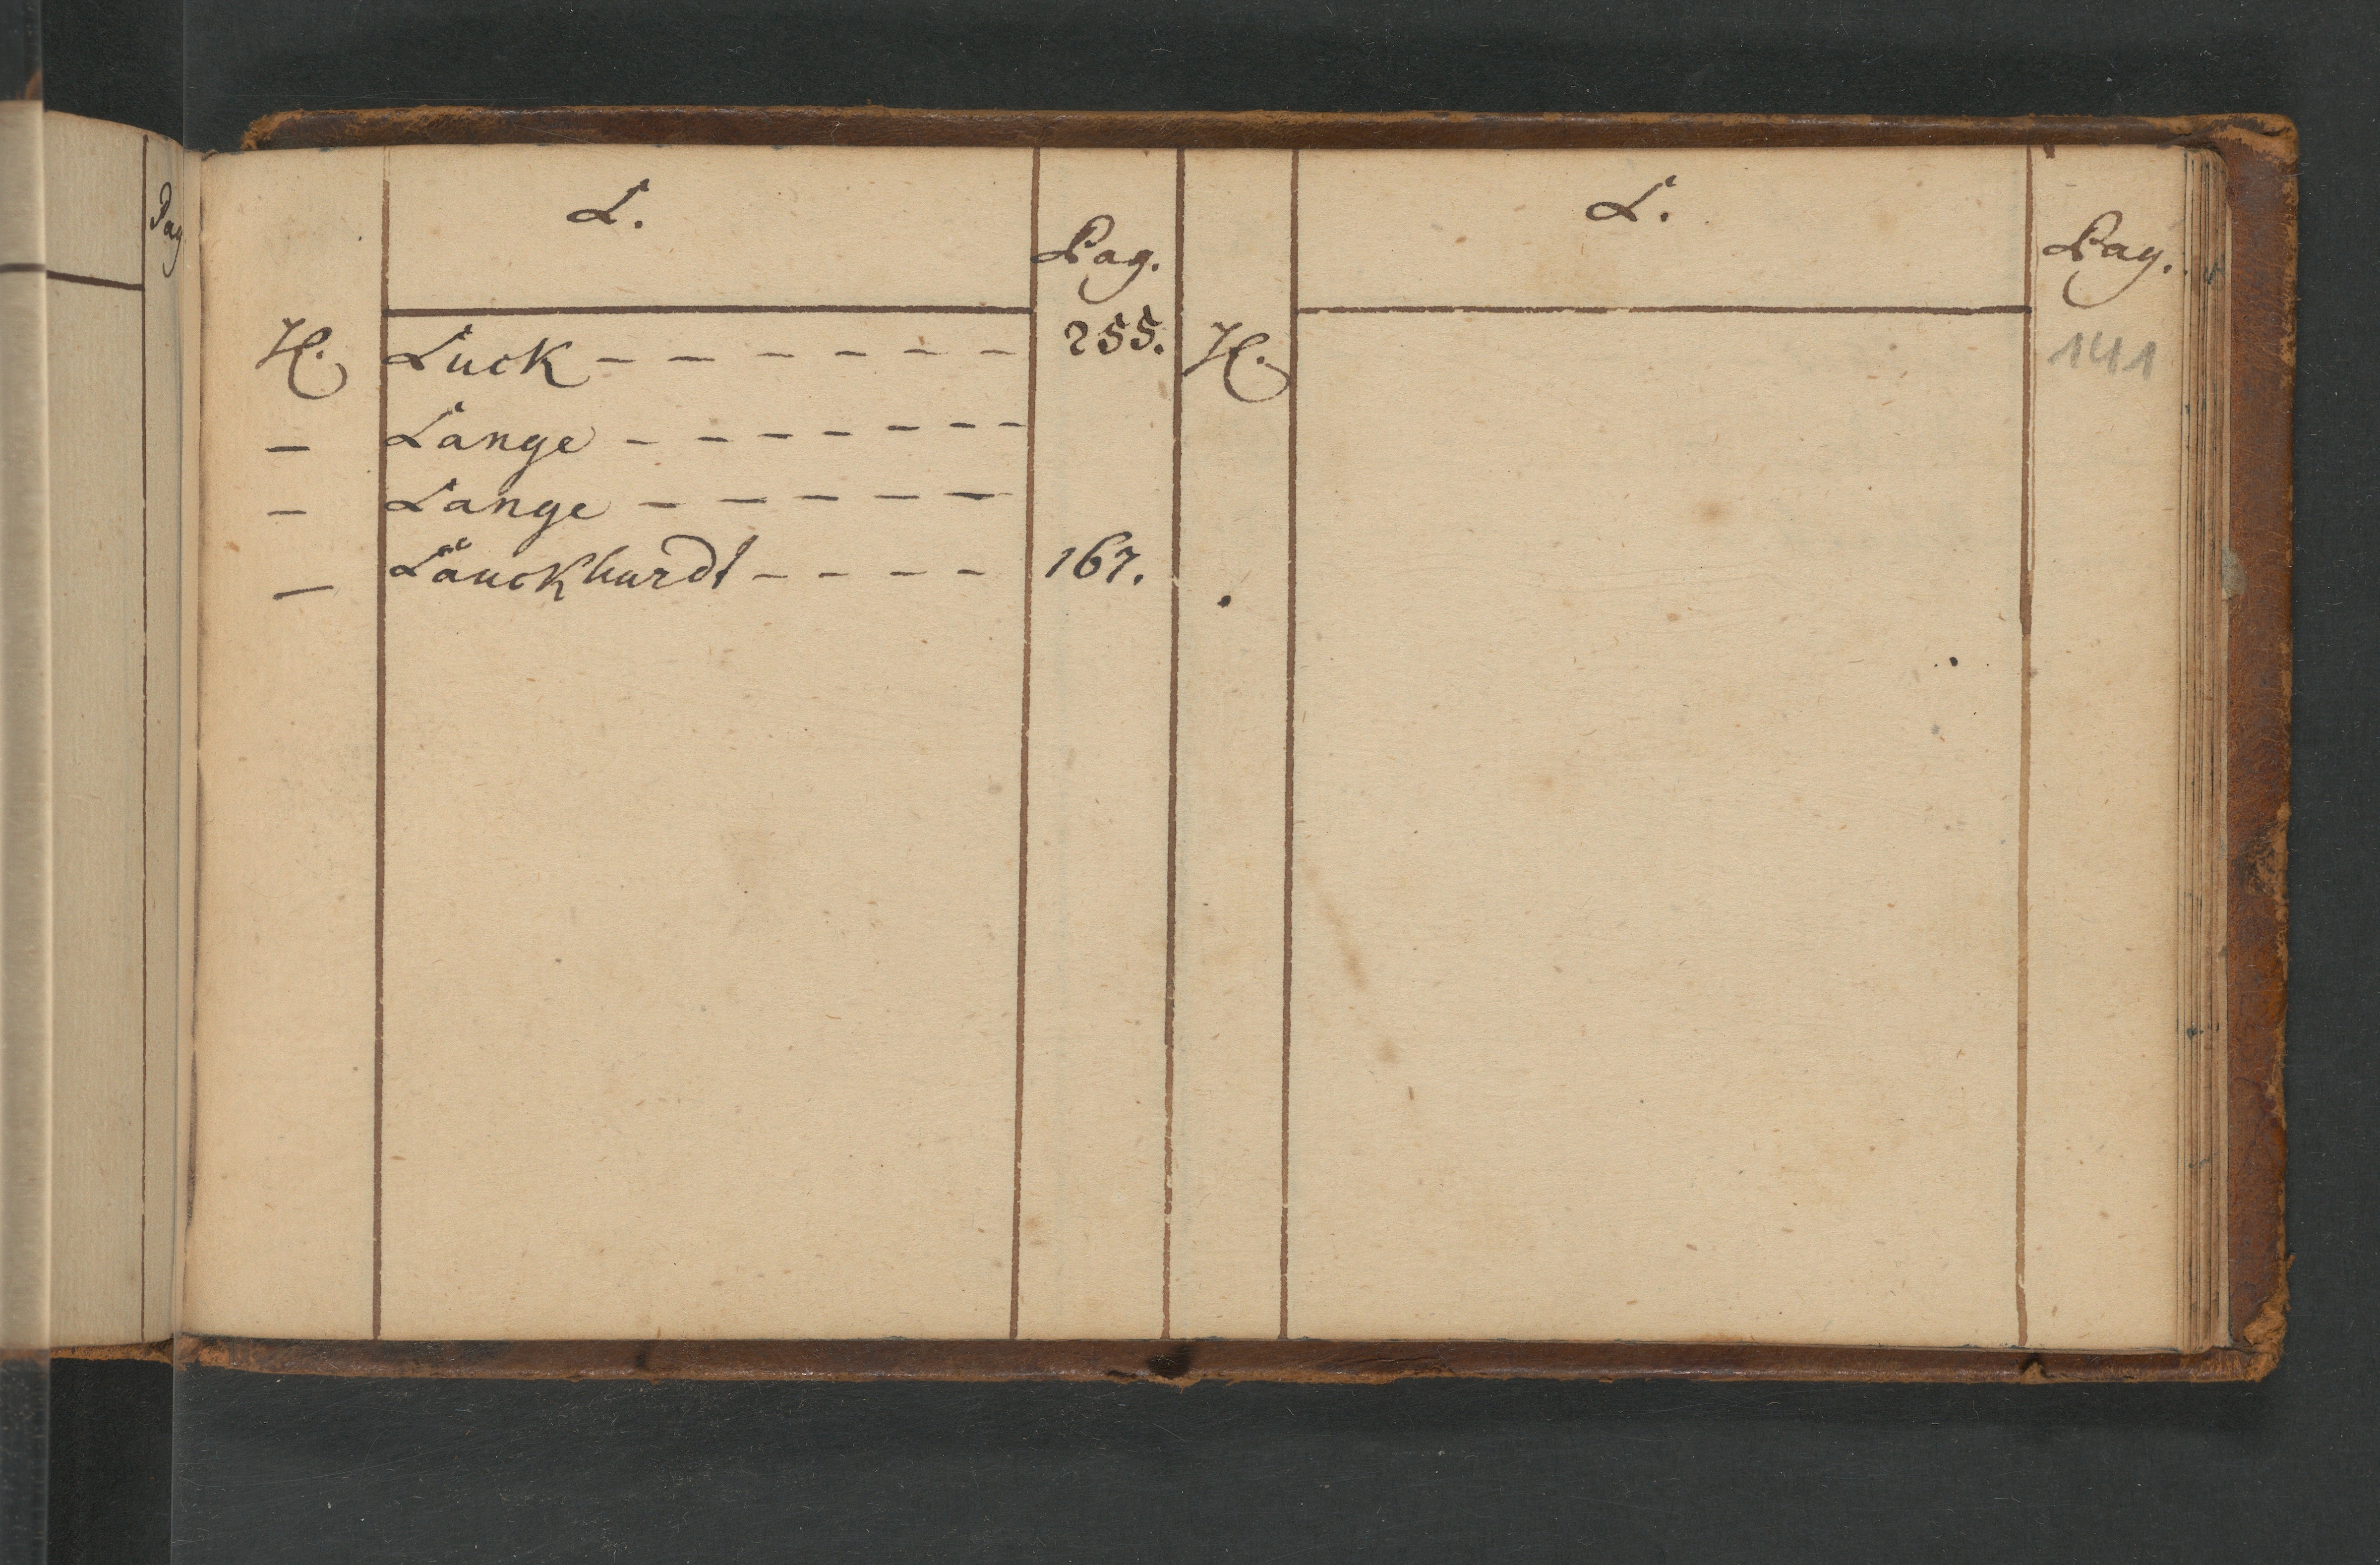 Pag
L.
Pag.
H. Luck - - - - - - - 255.
- Lange - - - - - - - -
- Lange - - - - -
- Lauckhardt - - - - 167.
L.
Pag.
H.
141